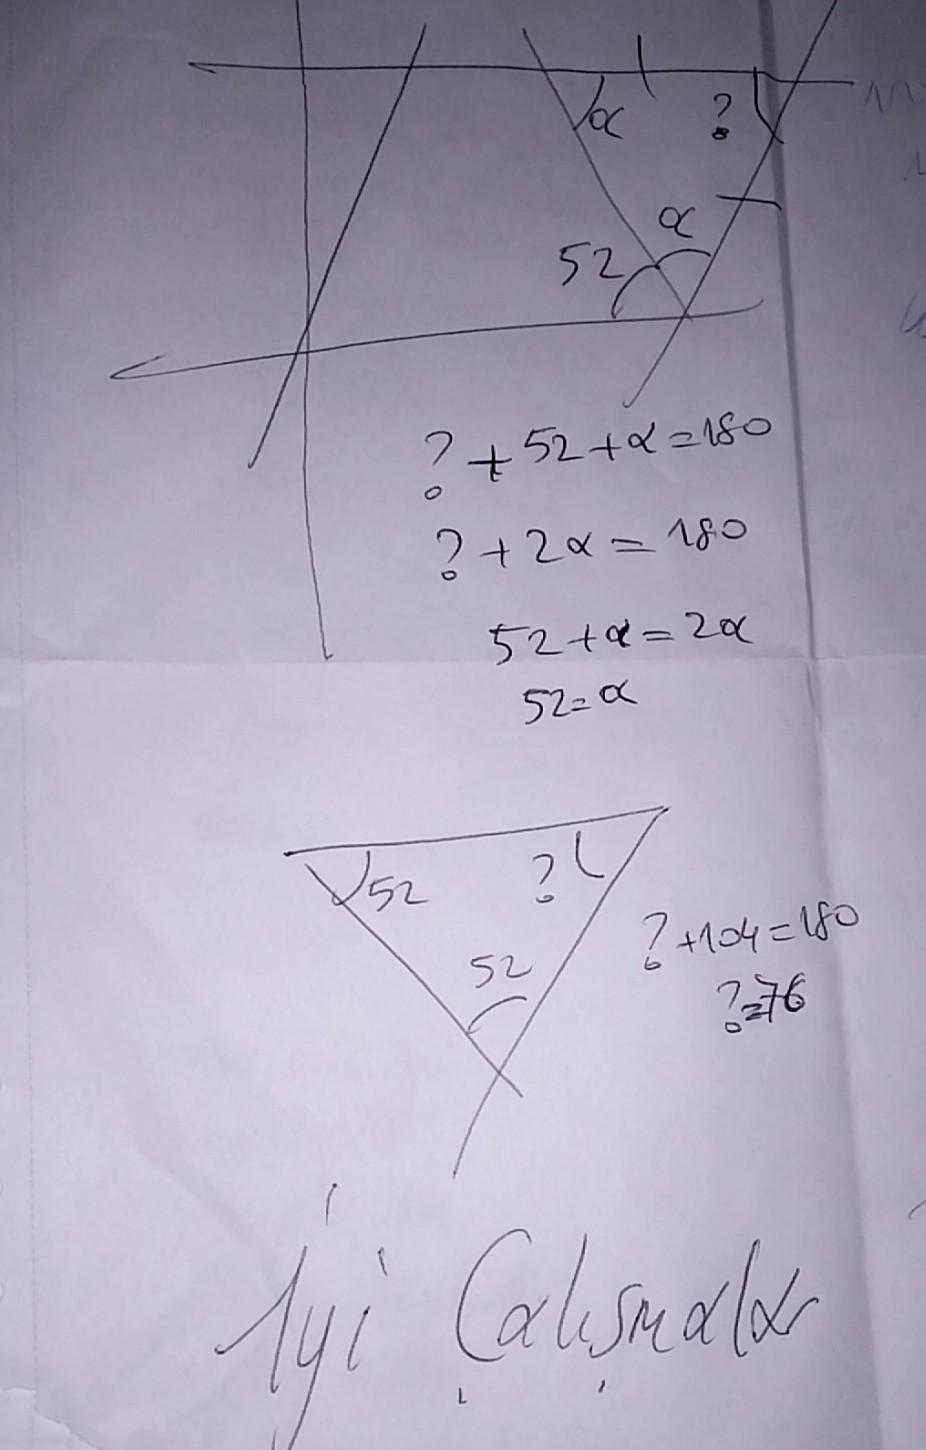 α ?
α
52
? + 52 + α = 180
? + 2α = 180
52 + α = 2α
52 = α
52 ?
52
? + 104 = 180
? = 76
İyi Çalışmalar